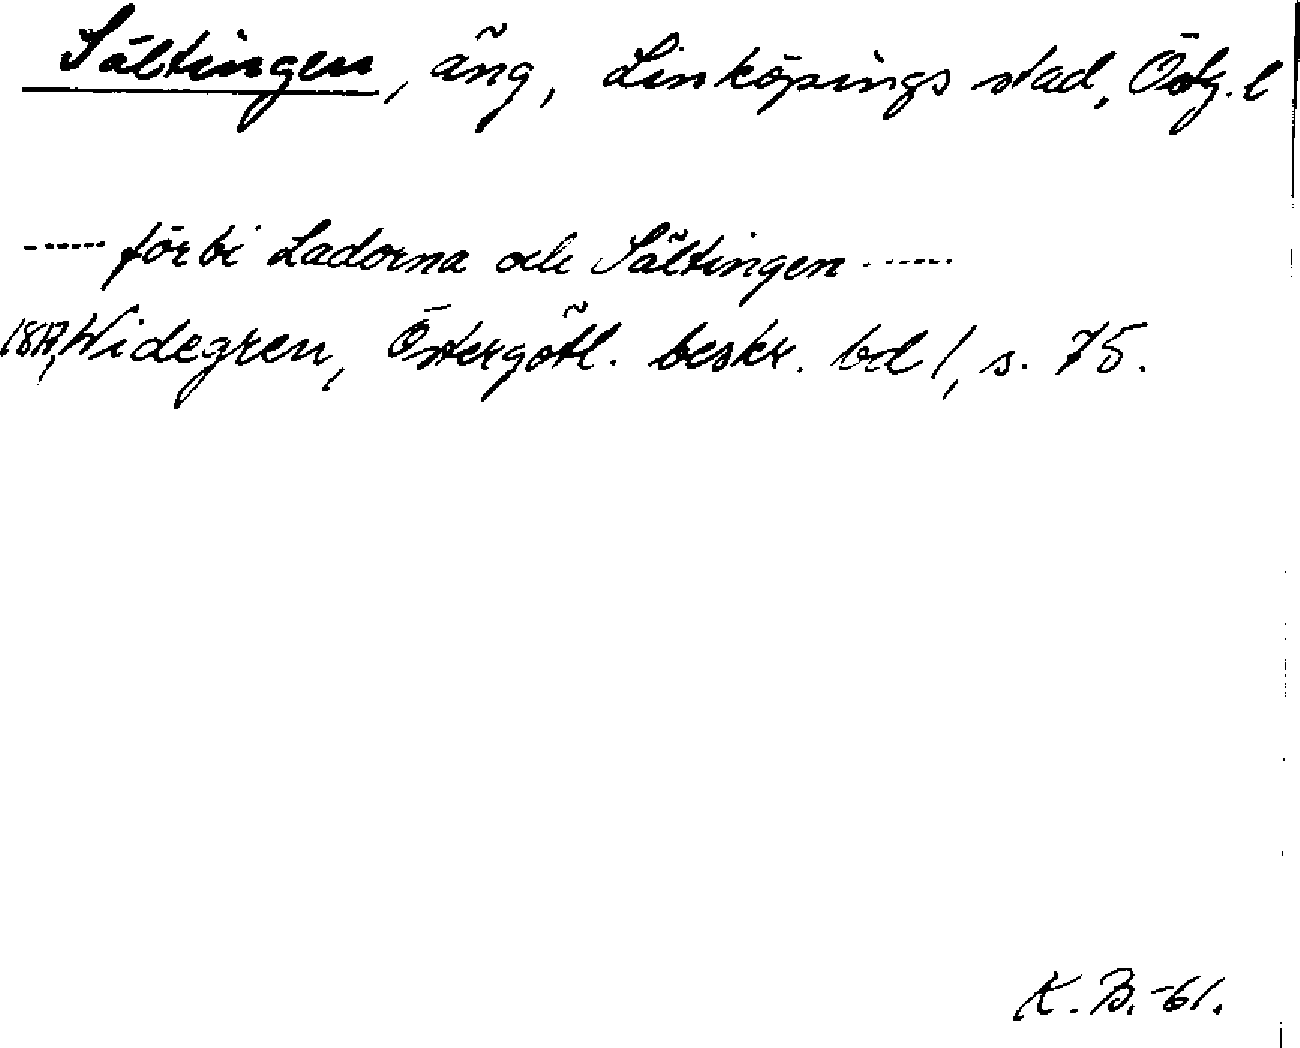 Sältingen, äng, Linköpings stad, Östg. l
------ förbi Ladorna och Sältingen ------
1817, Widegren, Östergötl. beskr. bd 1, s. 75.
K. B. -61.